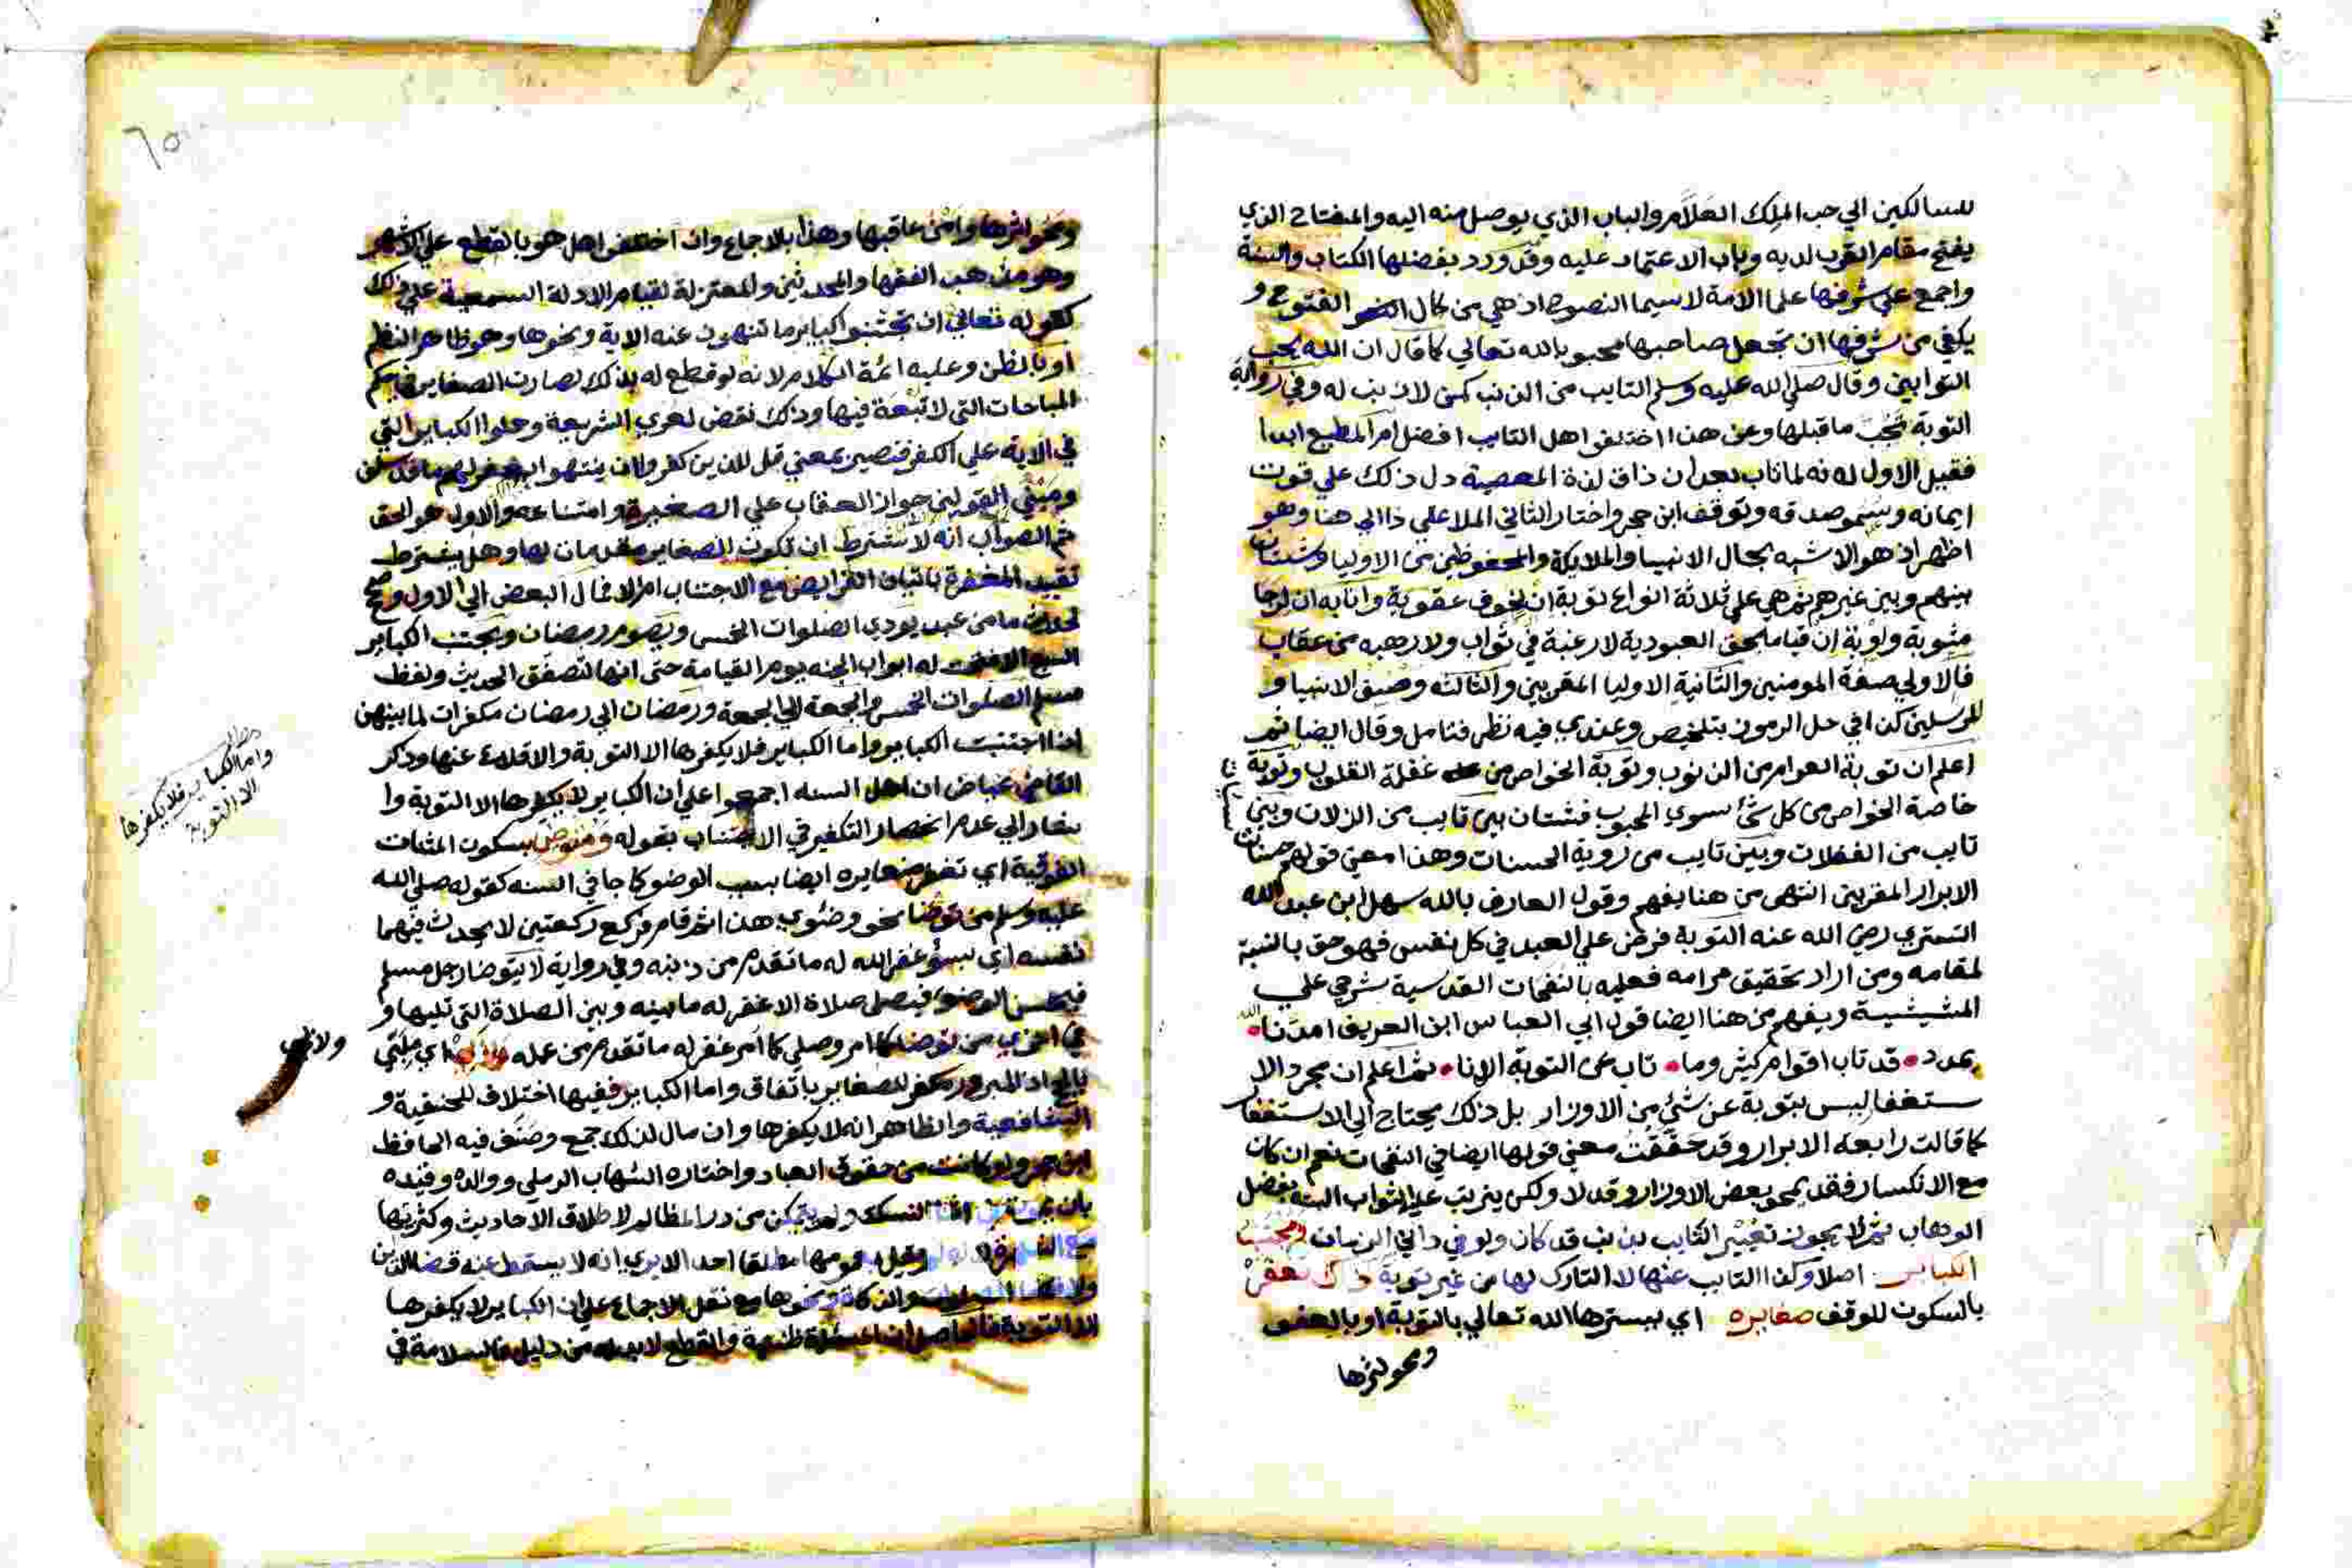 للسالكين الي حب الملك العلام والباب الذي يوصل منه اليه والمفتاح الذي
يفتح مقام القرب لديه وباب الاعتماد عليه وقد ورد بفضلها الكتاب والسنة
واجمع علي شرفها علما الامة لاسيما النصوح اذ هي من كمال الفتوح و
يكفي من شرفها ان تجعل صاحبها محبوبا لله تعالي كما قال ان الله يحب
التوابين وقال صلي الله عليه وسلم التايب من الذنب كمن لا ذنب له وفي رواية
التوبة تجب ما قبلها وعن هذا اختلفوا هل التايب افضل ام المطيع ابدا
فقيل الاول لانه لما تاب بعد ان ذاق لذة المعصية دل ذلك علي قوت
ايمانه وسمو صدقه وتوقف ابن حجر واختار الثاني الملا علي دالي هنا وهو
اظهر اذ هو الاشبه بحال الانبيا والملايكة والمحفوظين من الاوليا وشتان
بينهم وبين غيرهم ثم هي علي ثلاثة انواع توبة ان لخوف عقوبة وانابه ان لرجا
مثوبة واوبة ان قياما بحق العبودية لا رغبة في ثواب ولا رهبه من عقاب
فالاولي صفة المومنين والثانية الاوليا المقربين والثالثه وصف الانبيا و
المرسلين كذا في حل الرموز بتلخيص وعندي فيه نظر فتامل وقال ايضا ثم
اعلم ان توبة العوام من الذنوب وتوبة الخواص من غفلة القلوب وتوبة
خاصة الخواص من كل شئ سوي المحبوب فشتان بين تايب من الزلات وبين
تايب من الغفلات وبين تايب من روية الحسنات وهذا معني قولهم حسنات
الابرار المقربين انتهي من هنا يفهم وقول العارف بالله سهل ابن عبد الله
التستري رضي الله عنه التوبة فرض علي العبد في كل نفس فهو حق بالنسبة
لمقامه ومن اراد تحقيق مرامه فعليه بالنفحات القدسية شرحي علي
المشيشية ويفهم من هنا ايضا قول ابي العباس ابن العريف امدنا الله
بمدد قد تاب اقوام كثير وما تاب من التوبة الا انا ثم اعلم ان مجرد الا
ستغفار ليس بتوبة عن شئ من الاوزار بل ذلك يحتاج الي الاستغفار
كما قالت رابعه الابرار وقد حققت معني قولها ايضا في النفحات نعم ان كان
مع الانكسار فقد يمحو بعض الاوزار وقد لا ولكن يترتب عليه الثواب البتة بفضل
الوهاب ثم لا يجوز تعيير التايب بذنب قد كان ولو في داني الزمان
الكباير اصلا وكذا التايب عنها لا التارك لها من غير توبة ذلك تغفر
بالسكون للوقف صغايره اي يسترها الله تعالي بالتوبة او بالعفو
ومحو اثرها
٦٥
ومحو اثرها وامن عاقبها وهذا بالاجماع وان اختلفوا هل هو بالقطع علي الاشهر
وهو مذهب الفقها والمحدثين والمعتزلة لقيام الادلة السمعية علي ذلك
كقوله تعالي ان تجتنبوا كباير ما تنهون عنه الاية ونحوها وهو ظاهر النظم
او بالظن وعليه ائمة الكلام لانه لو قطع له بذلك لصارت الصغاير في حكم
المباحات التي لا تبعة فيها وذلك نقض لعري الشريعة وحملوا الكباير التي
في الاية علي الكفر فتصير بمعني قل للذين كفروا ان ينتهوا يغفر لهم ما قد سلف
ومبني القولين جواز العقاب علي الصغيرة وامتناعه والاول هو الحق
ثم الصواب انه لا يشترط ان تكون للصغاير مقدمات لها وهل يشترط
تقييد المغفرة باتيان الفرايض مع الاجتناب ام لا فمال البعض الي الاول وصح
لحديث ما من عبد يودي الصلوات الخمس ويصوم رمضان ويجتنب الكباير
السبع الا فتحت له ابواب الجنه يوم القيامة حتي انها لتصفق الحديث ولفظ
مسلم الصلوات الخمس والجمعة الي الجمعة ورمضان الي رمضان مكفرات لما بينهن
اذا اجتنبت الكباير واما الكباير فلا يكفرها الا التوبة والاقلاع عنها وذكر
القاضي عياض ان اهل السنه اجمعوا علي ان الكباير لا يكفرها الا التوبة وا
شار الي عدم انحصار التكفير في الاجتناب بقوله بسكون المثنات
الفوقية اي تغفر صغايره ايضا بسبب الوضو كما جا في السنه كقوله صلي الله
عليه وسلم من توضا نحو وضوي هذا ثم قام فركع ركعتين لا يحدث فيهما
نفسه اي بسوء غفر الله له ما تقدم من ذنبه وفي رواية لا يتوضا رجل مسلم
فيحسن الوضوء فيصلي صلاة الا غفر له ما بينه وبين الصلاة التي تليها و
في اخري من توضا كما امر وصلي كما امر غفر له ما تقدم من عمله
المبرور مكفر للصغاير باتفاق واما الكباير ففيها اختلاف للحنفية و
الشافعية والظاهر انه لا يكفرها وان مال لذلك جمع وصنف فيه الحافظ
ابن حجر ولو كانت من حقوق العباد واختاره الشهاب الرملي ووالده وقيده
النسك ولم يتمكن من رد المظالم لاطلاق الاحاديث وكثرتها
وقيل بعمومها مطلقا احد الا يري انه لا يسقط عنه قضا الدين
والزكاة ونحوها مع نقل الاجماع علي ان الكباير لا يكفرها
الا التوبة فالحاصل ان المسئلة ظنية والقطع لا بد له من دليل فالسلامة في
واما الكباير فلا يكفرها
الا التوبة